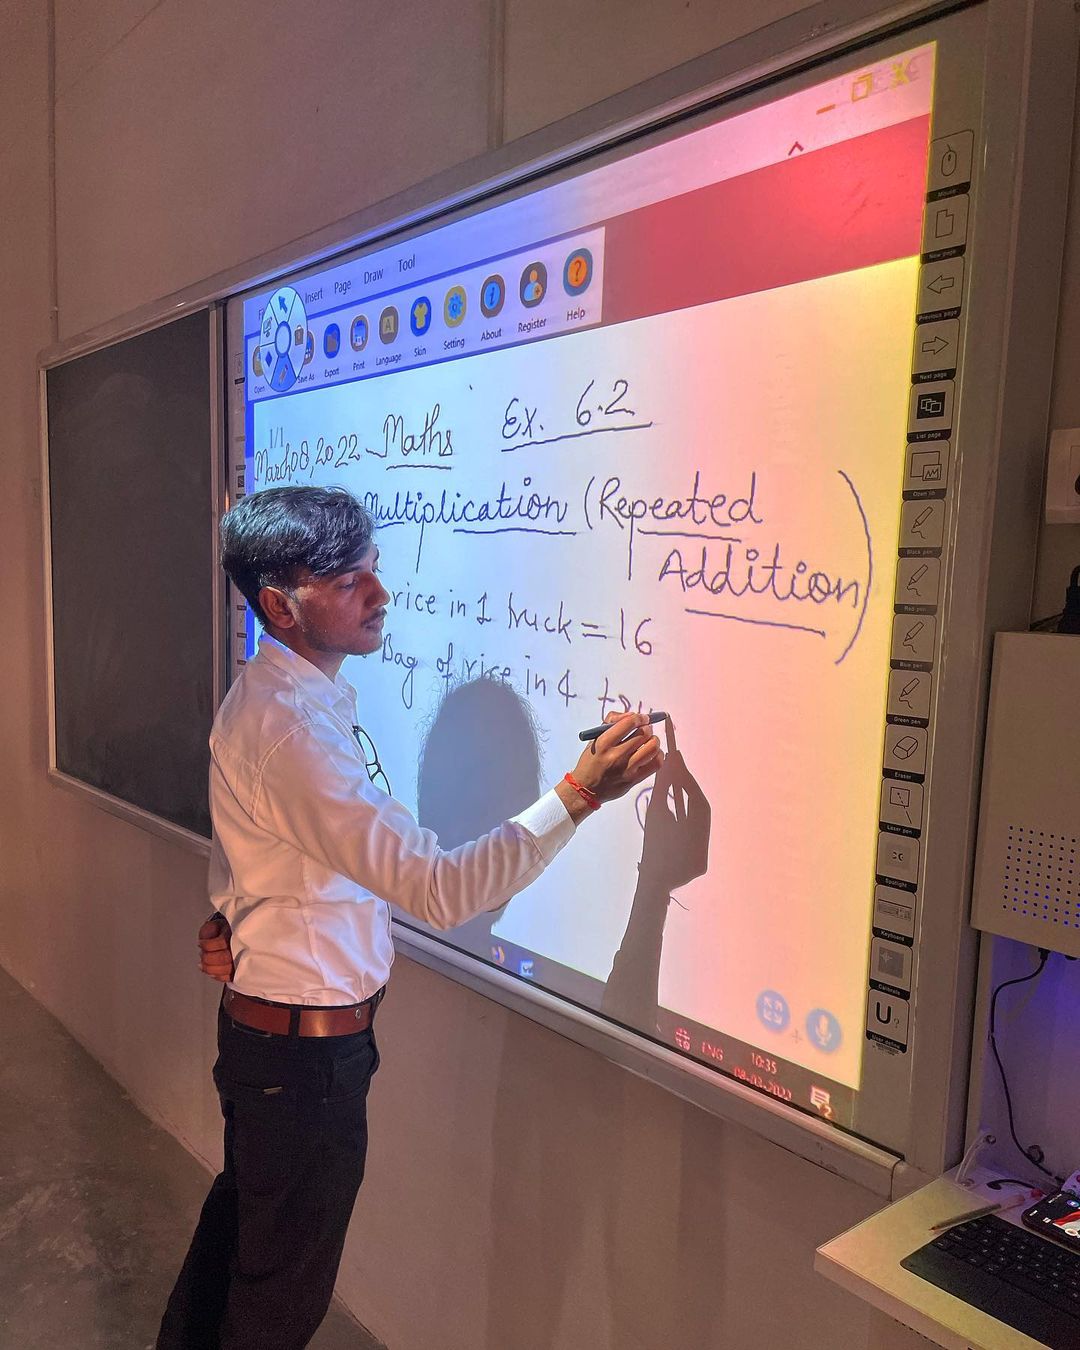 Insert Page Draw Tool
Open Save As Export Print Language Skin Setting About Register Help
1/1
March 08, 2022 Maths Ex. 6.2
Multiplication (Repeated
Addition)
rice in 1 truck = 16
Bag of rice in 4 tru
ENG 10:35
2
Mouse
New page
Previous page
Next page
List page
Open lib
Black pen
Red pen
Blue pen
Green pen
Eraser
Laser pen
Spotlight
Keyboard
Calibrate
U?